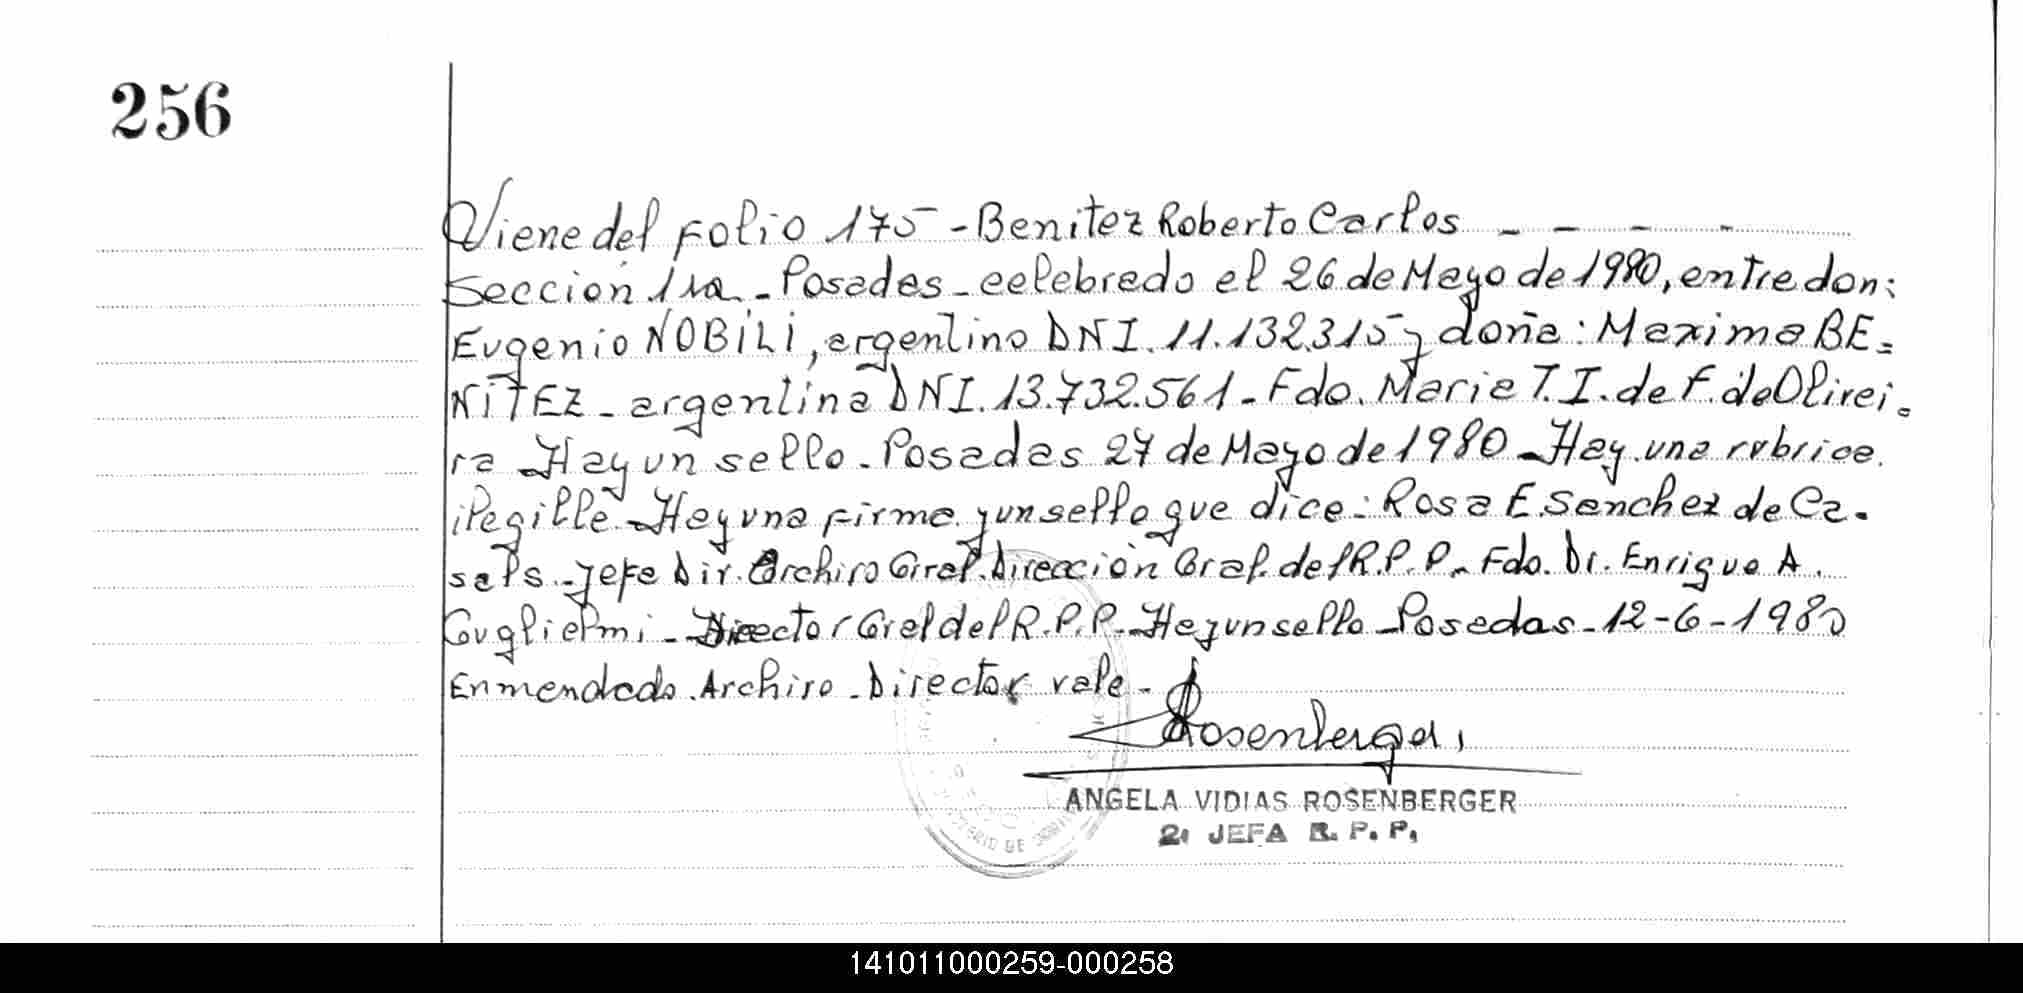 256
Viene del Folio 175 - Benitez Roberto Carlos - - - -
Sección 1ra - Posadas - celebrado el 26 de Mayo de 1980, entre don:
Eugenio NOBILI, argentino DNI. 11.132.315 y doña: Maxima BE=
NITEZ - argentina DNI. 13.732.561 - Fdo. Maria T. I. de F. de Olivei-
ra - Hay un sello - Posadas 27 de Mayo de 1980 - Hay una rubrica
ilegille - Hay una firma y un sello que dice: Rosa E. Sanchez de Ca-
sals - Jefe Dir. Archivo Gral. Dirección Gral. del R.P.P. - Fdo. Dr. Enrique A.
Guglielmi - Director Gral del R.P.P. - Hay un sello - Posadas - 12-6-1980
Enmendado. Archivo - Director vale -
Rosenberger
ANGELA VIDIAS ROSENBERGER
2. JEFA R. P. P.
141011000259-000258